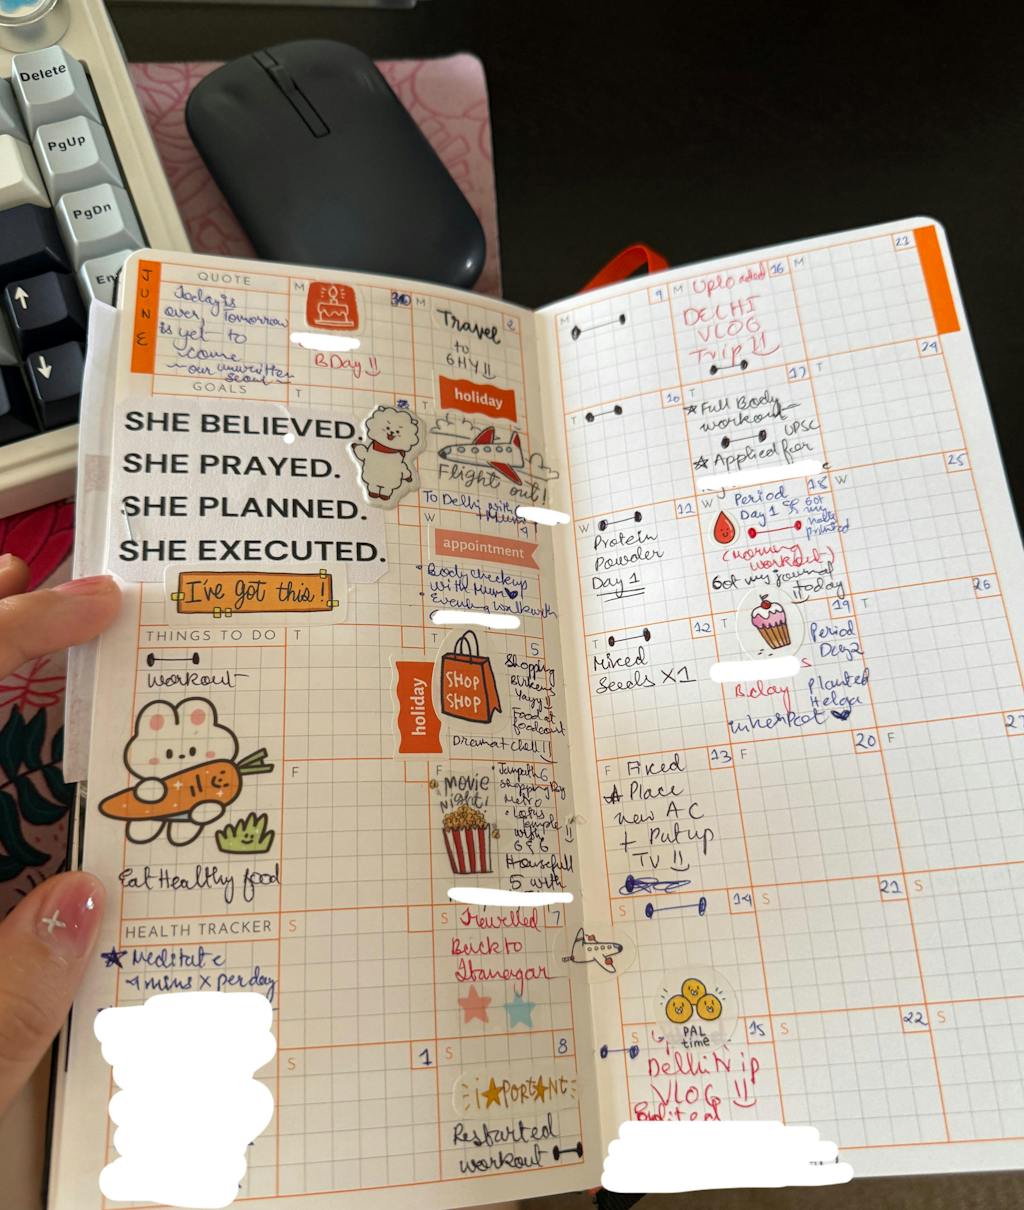 Delete
PgUp
PgDn
En
↑
↓
JUNE
QUOTE
Today is
over, Tomorrow
is yet to
come
GOALS
SHE BELIEVED.
SHE PRAYED.
SHE PLANNED.
SHE EXECUTED.
I've got this!
THINGS TO DO
workout
Eat Healthy food
HEALTH TRACKER
★ Meditate
mins x per day
M
BDay !!
T
T
F
S
S 1
M 2
Travel
to
GHY !!
holiday
T
Flight out!
To Delhi with
Mum
W 4
appointment
• Body checkup
with Mum
• Evening walk with
T 5
holiday
SHOP
SHOP
Shopping
Yayy !!
Food at
foodcourt
F 6
MOVIE
NIGHT!
Shopping
Metro
• Lotus
Temple
with
Housefull
5 with
S 7
Travelled
Back to
Itanagar
S 8
IMPORTANT
Restarted
workout
M 9
T 10
W 11
Protein
Powder
Day 1
T 12
Mixed
Seeds X1
F 13
Fixed
★ Place
new AC
+ Put up
TV !!
S 14
PAL
time
S 15
Delhi Trip
VLOG !!
Edited
M 16
Uploaded
DELHI
VLOG
Trip !!
T 17
★ Full Body
workout
UPSC
★ Applied for
W 18
Period
Day 1
Got
my
nails
(Morning
workout)
Got my journal
today
T 19
Period
Day 2
Bday
Planted
F 20
S 21
S 22
M 23
T 24
W 25
T 26
F 27
S
S